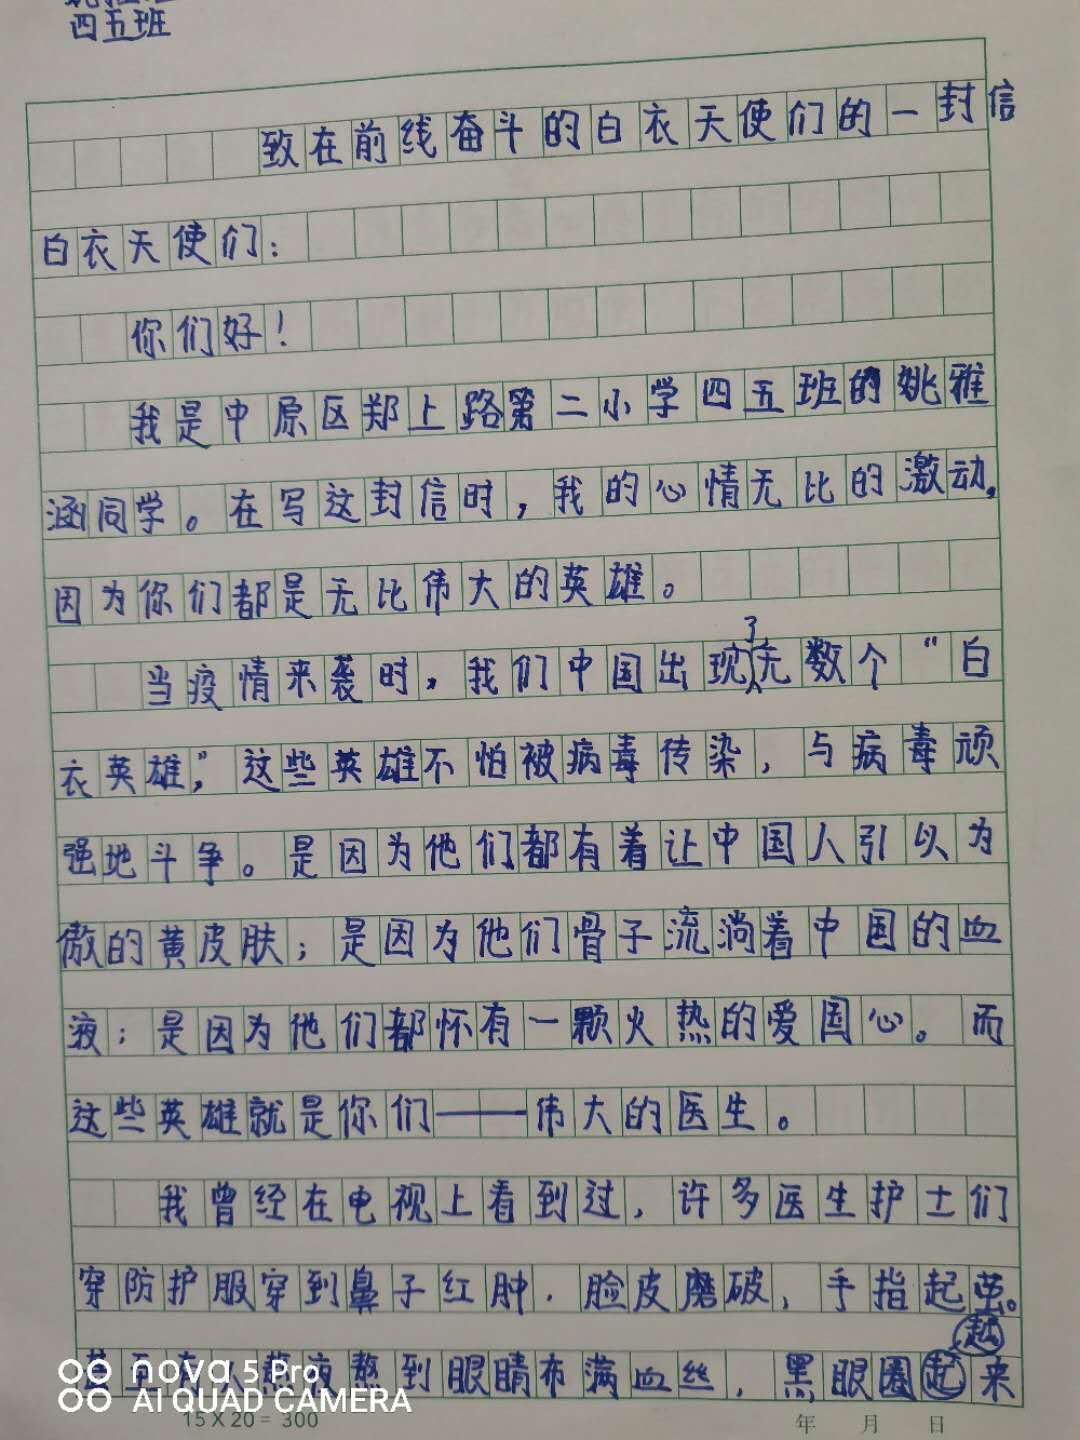 四五班
致在前线奋斗的白衣天使们的一封信
白衣天使们:
你们好!
我是中原区郑上路第二小学四五班的姚雅
涵同学。在写这封信时,我的心情无比的激动,
因为你们都是无比伟大的英雄。
当疫情来袭时,我们中国出现了无数个“白
衣英雄”,这些英雄不怕被病毒传染,与病毒顽
强地斗争。是因为他们都有着让中国人引以为
傲的黄皮肤;是因为他们骨子流淌着中国的血
液;是因为他们都怀有一颗火热的爱国心。而
这些英雄就是你们——伟大的医生。
我曾经在电视上看到过,许多医生护士们
穿防护服穿到鼻子红肿,脸皮磨破,手指起茧。
熬到眼睛布满血丝,黑眼圈越来
nova 5 Pro
AI QUAD CAMERA
15X20=300
年 月 日